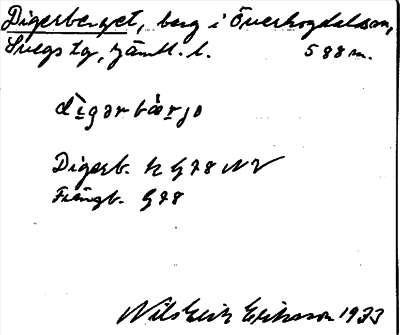 Digerberget, berg i Överhogdals sn,
Svegs tg, Jämtl. l. 588 m.
dìgərbæ̀rjə
Digerb. h G 78 NV
Flängb. G 78
Nils Erik Eriksson 1933